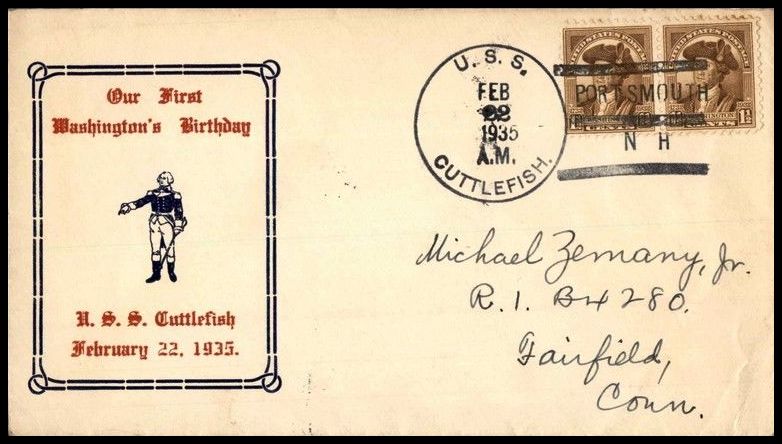 Our First
Washington's Birthday
U. S. S. Cuttlefish
February 22, 1935.
U. S. S.
FEB
22
1935
A.M.
CUTTLEFISH.
UNITED STATES POSTAGE
UNITED STATES POSTAGE
PORTSMOUTH
N H
CENTS
CENTS
1½
Michael Zemany, Jr.
R. 1. Bx 280.
Fairfield,
Conn.